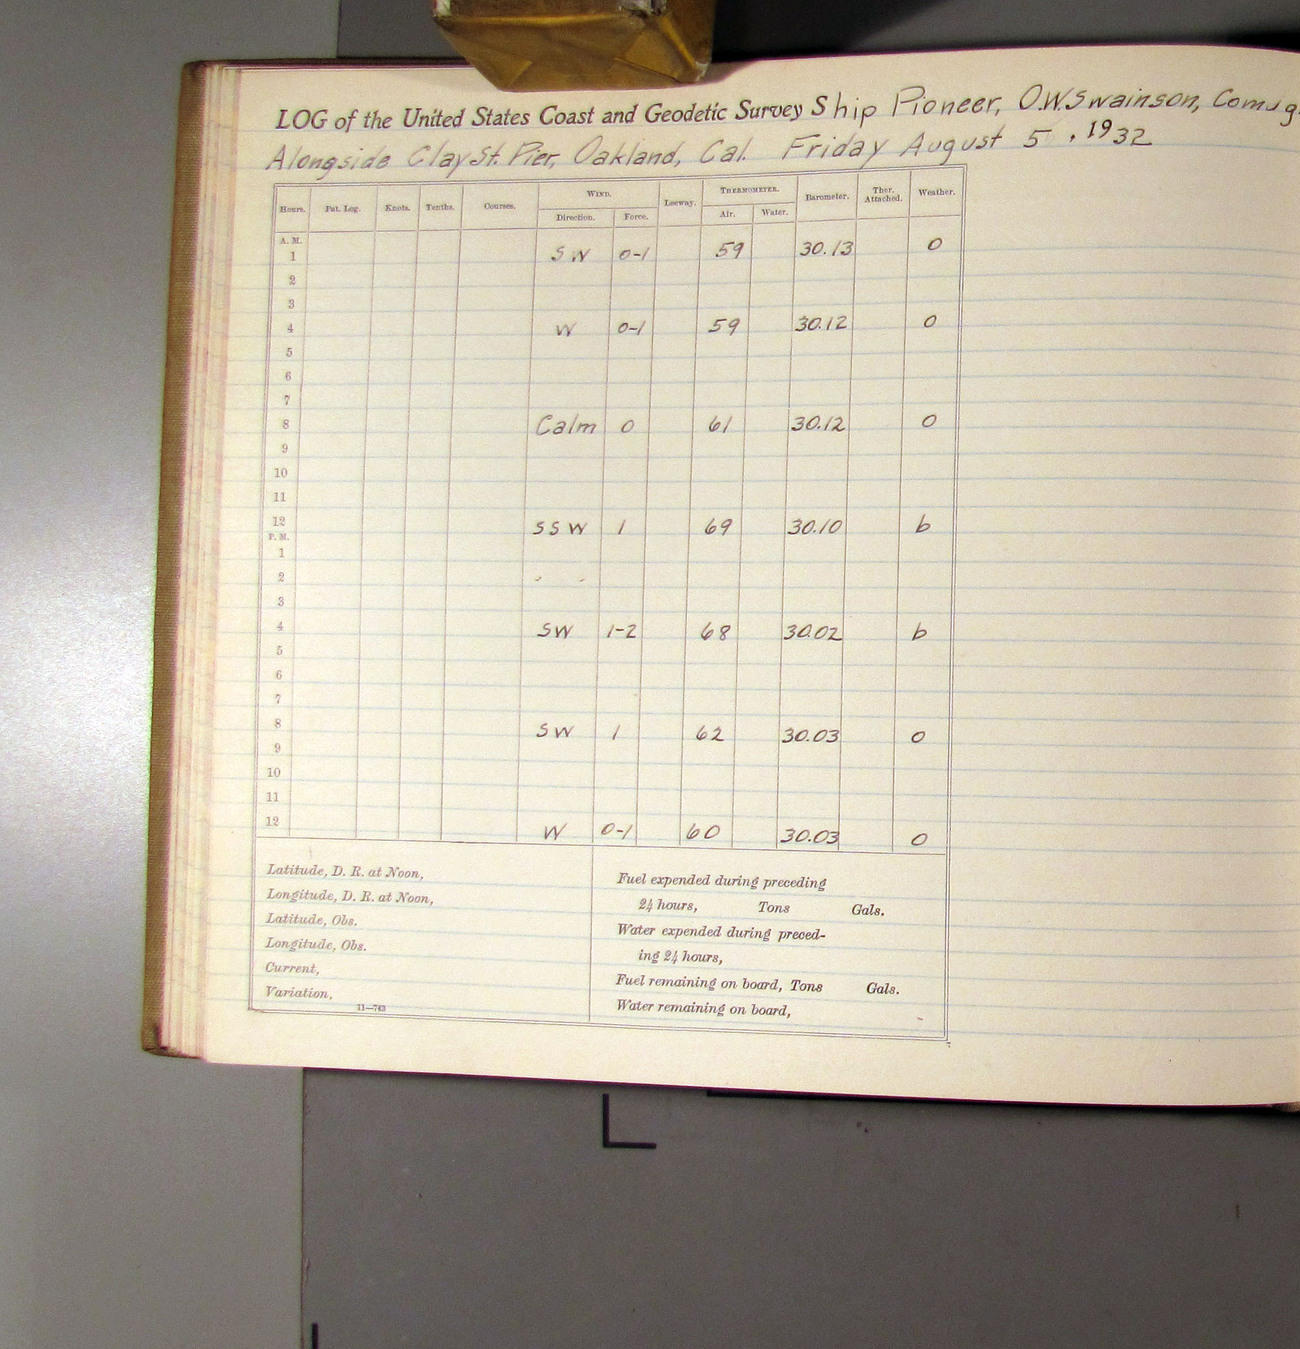 LOG of the United States Coast and Geodetic Survey Ship Pioneer, O.W. Swainson, Comdg.
Alongside Clay St. Pier, Oakland, Cal. Friday August 5, 1932
Hours. Pat. Log. Knots. Tenths. Courses. WIND. Leeway. THERMOMETER. Barometer. Ther. Attached. Weather.
Direction. Force. Air. Water.
A. M.
1 SW 0-1 59 30.13 o
2
3
4 W 0-1 59 30.12 o
5
6
7
8 Calm 0 61 30.12 o
9
10
11
12 SSW 1 69 30.10 b
P. M.
1
2
3
4 SW 1-2 68 30.02 b
5
6
7
8 SW 1 62 30.03 o
9
10
11
12 W 0-1 60 30.03 o
Latitude, D. R. at Noon,
Longitude, D. R. at Noon,
Latitude, Obs.
Longitude, Obs.
Current,
Variation,
11—763
Fuel expended during preceding
24 hours, Tons Gals.
Water expended during preced-
ing 24 hours,
Fuel remaining on board, Tons Gals.
Water remaining on board,